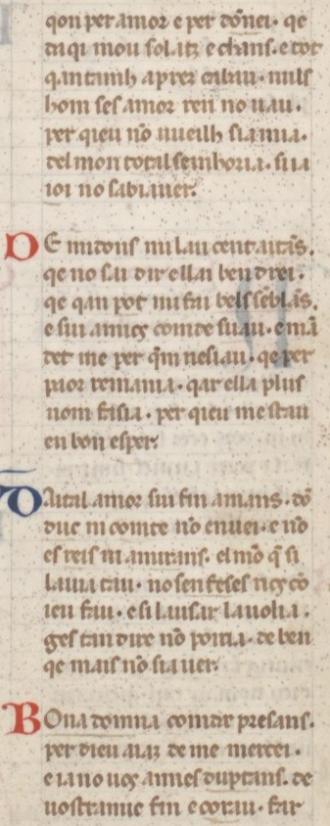 qon per amor e per dōnei. qe
daqi mou solatz e chans. e tot
qantanh a prez cabau. nuls
hom ses amor ren no uau.
per qieu nō uueilh sia mia.
del mon tota l seinhoria. si ia
ioi no sabi auer.
DE midons mi lau cent aitās.
qe no sai dir ella i ben drei.
qe qan pot mi fai bels sēblās.
e sui amics comte suau. e mā
det me per qm nesiau. qe per
paor remania. qar ella plus
nom fasia. per qieu me stau
en bon esper.
DAital amor sui fin amans. dō
duc ni comte nō enuei. e nō
es reis ni amirans. el mō q̄ si
lauia tau. no sen feses rics cō
ieu fau. e si lausar la uolia.
ges tan dire nō poiria. de ben
qe mais nō sia uer.
BOna domna coindꝛ presans.
per dieu aiaz de me mercei.
e ia no uos annes duptans. de
uostramic fin e corau. far